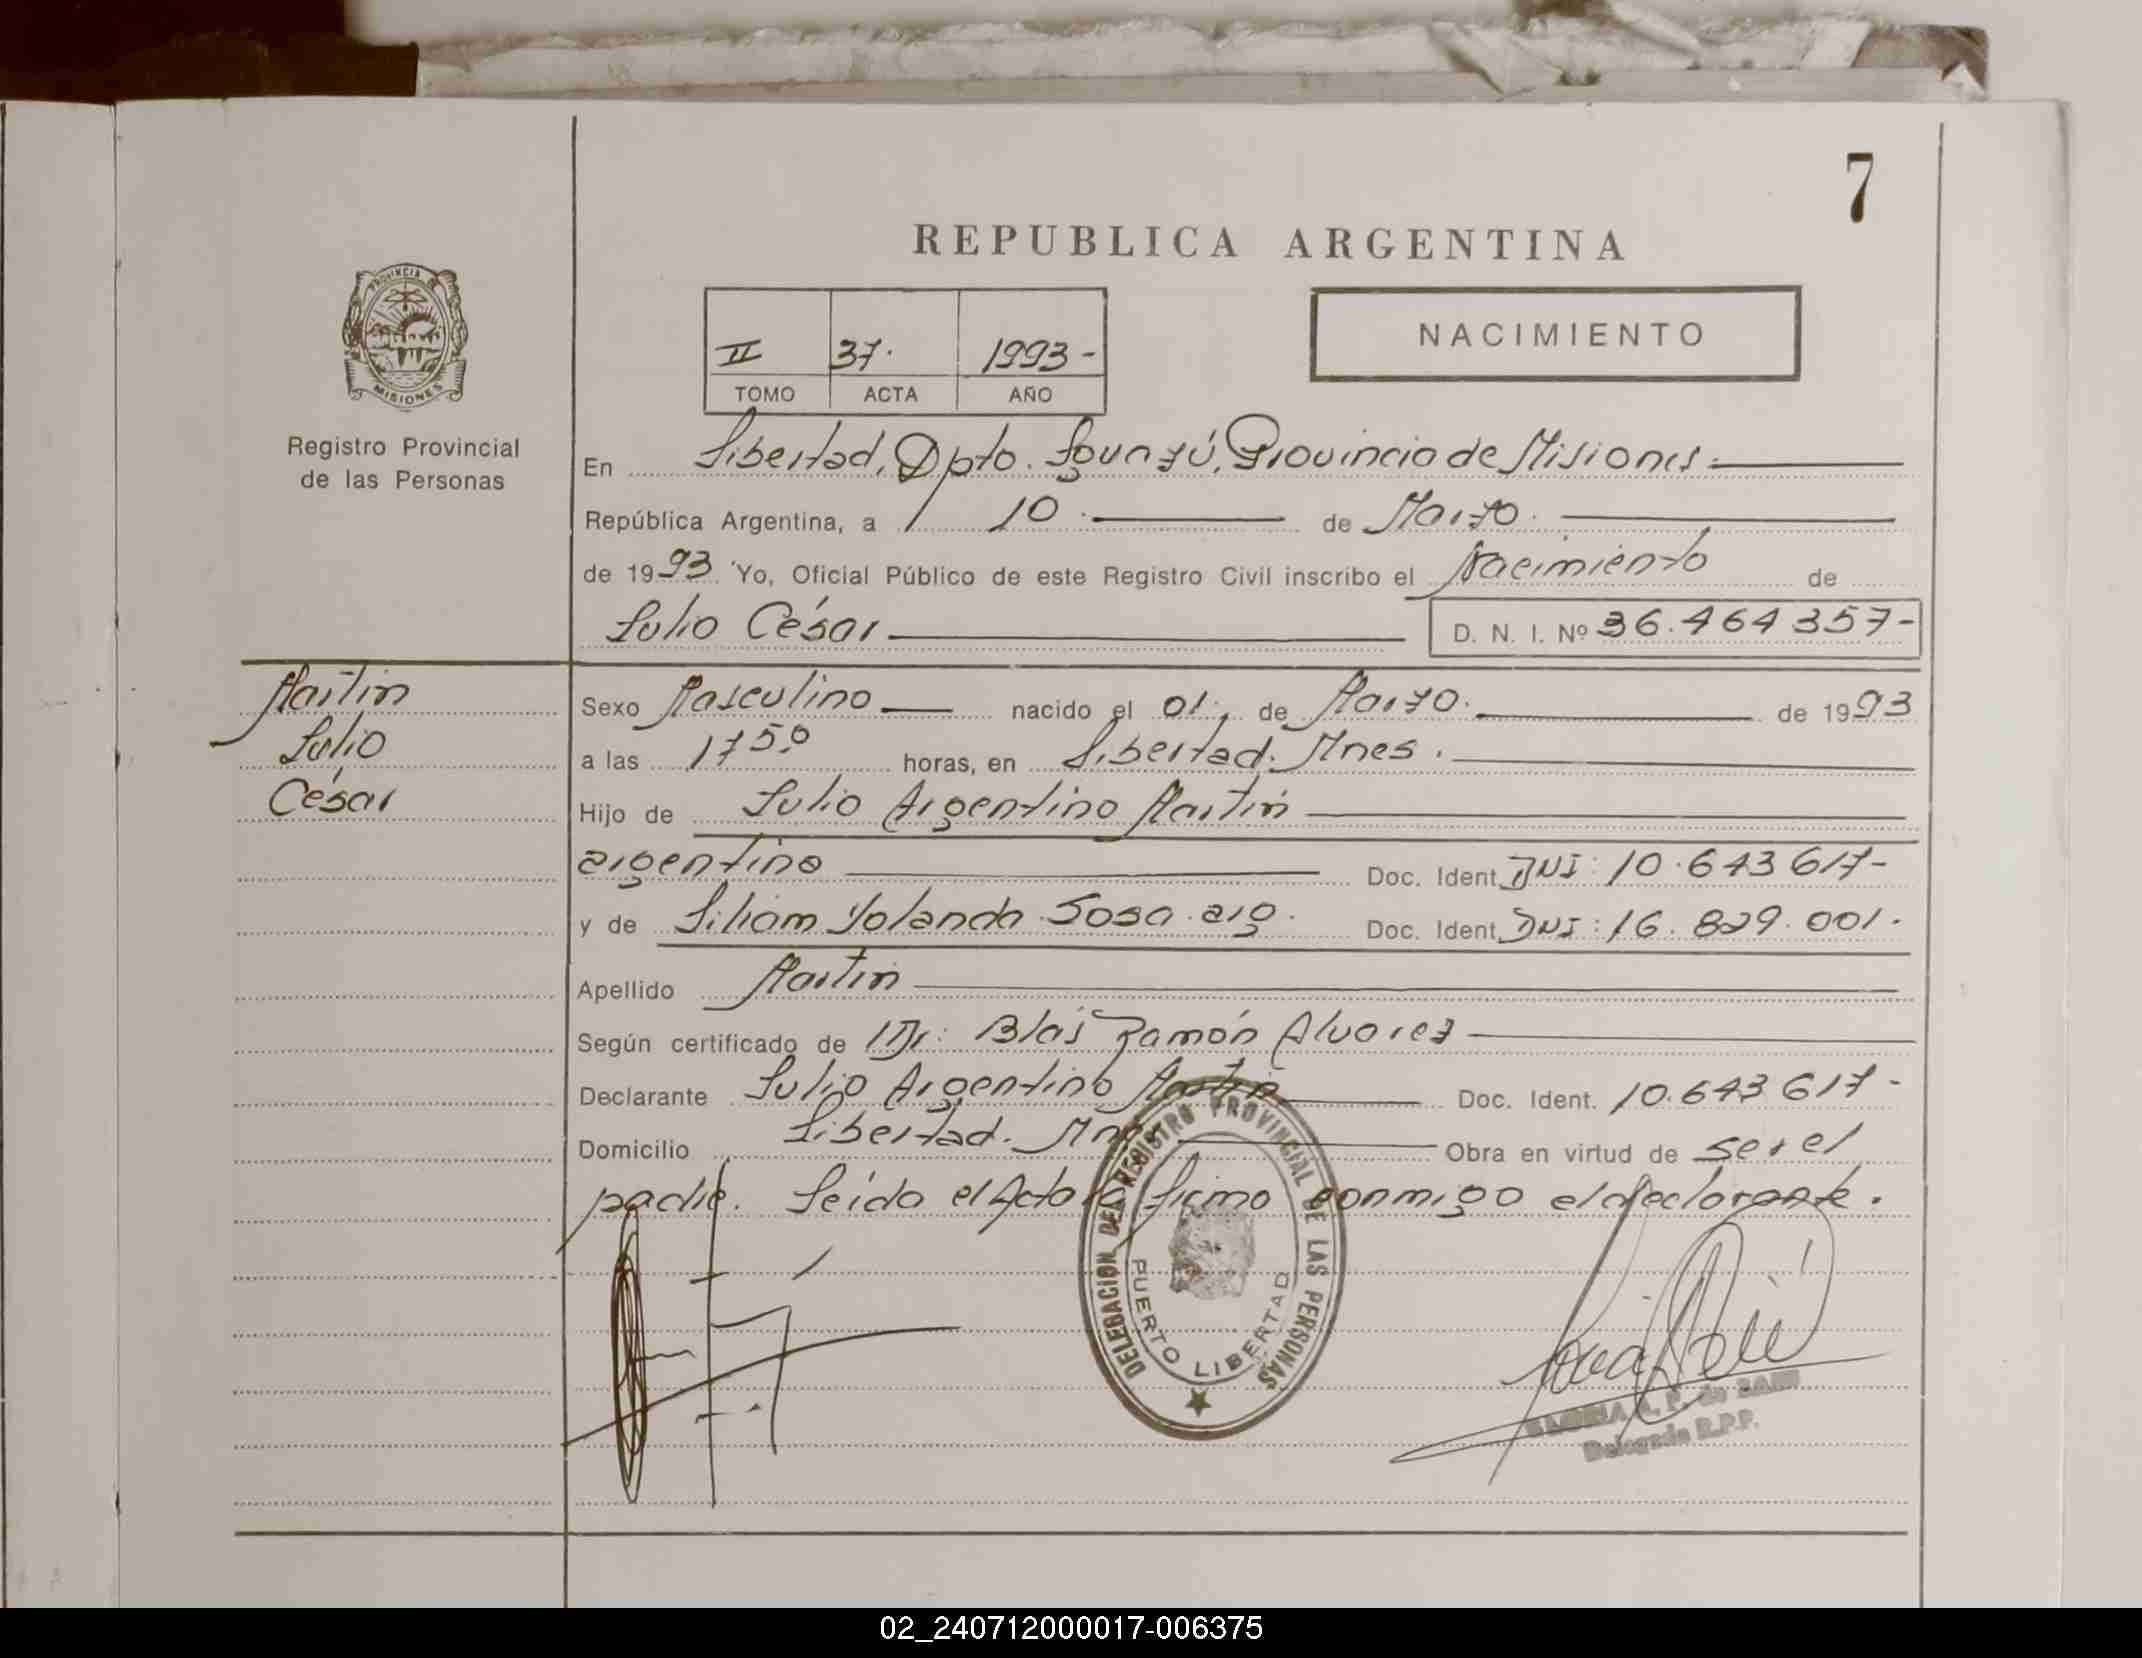 7
REPUBLICA ARGENTINA
PROVINCIA
MISIONES
Registro Provincial
de las Personas
II 37. 1993-
TOMO ACTA AÑO
NACIMIENTO
En Libertad, Dpto. Iguazú, Provincia de Misiones.
República Argentina, a 10. de Marzo.
de 1993. Yo, Oficial Público de este Registro Civil inscribo el Nacimiento de
Julio César D. N. I. Nº 36.464 357-
Martin
Julio
César
Sexo Masculino nacido el 01. de Marzo. de 1993
a las 17 50 horas, en Libertad. Mnes.
Hijo de Julio Argentino Martin
argentino Doc. Ident. DNI: 10.643 617-
y de Liliam Yolanda Sosa. arg. Doc. Ident. DNI: 16.829.001.
Apellido Martin
Según certificado de Dr: Blás Ramón Alvarez
Declarante Julio Argentino Martin Doc. Ident. 10.643 617-
Domicilio Libertad. Mnes Obra en virtud de ser el
padre. Leída el Acta la firma conmigo el declarante.
DELEGACION DEL REGISTRO PROVINCIAL DE LAS PERSONAS
PUERTO LIBERTAD
A. P. de
Delegada R.P.P.
02_240712000017-006375